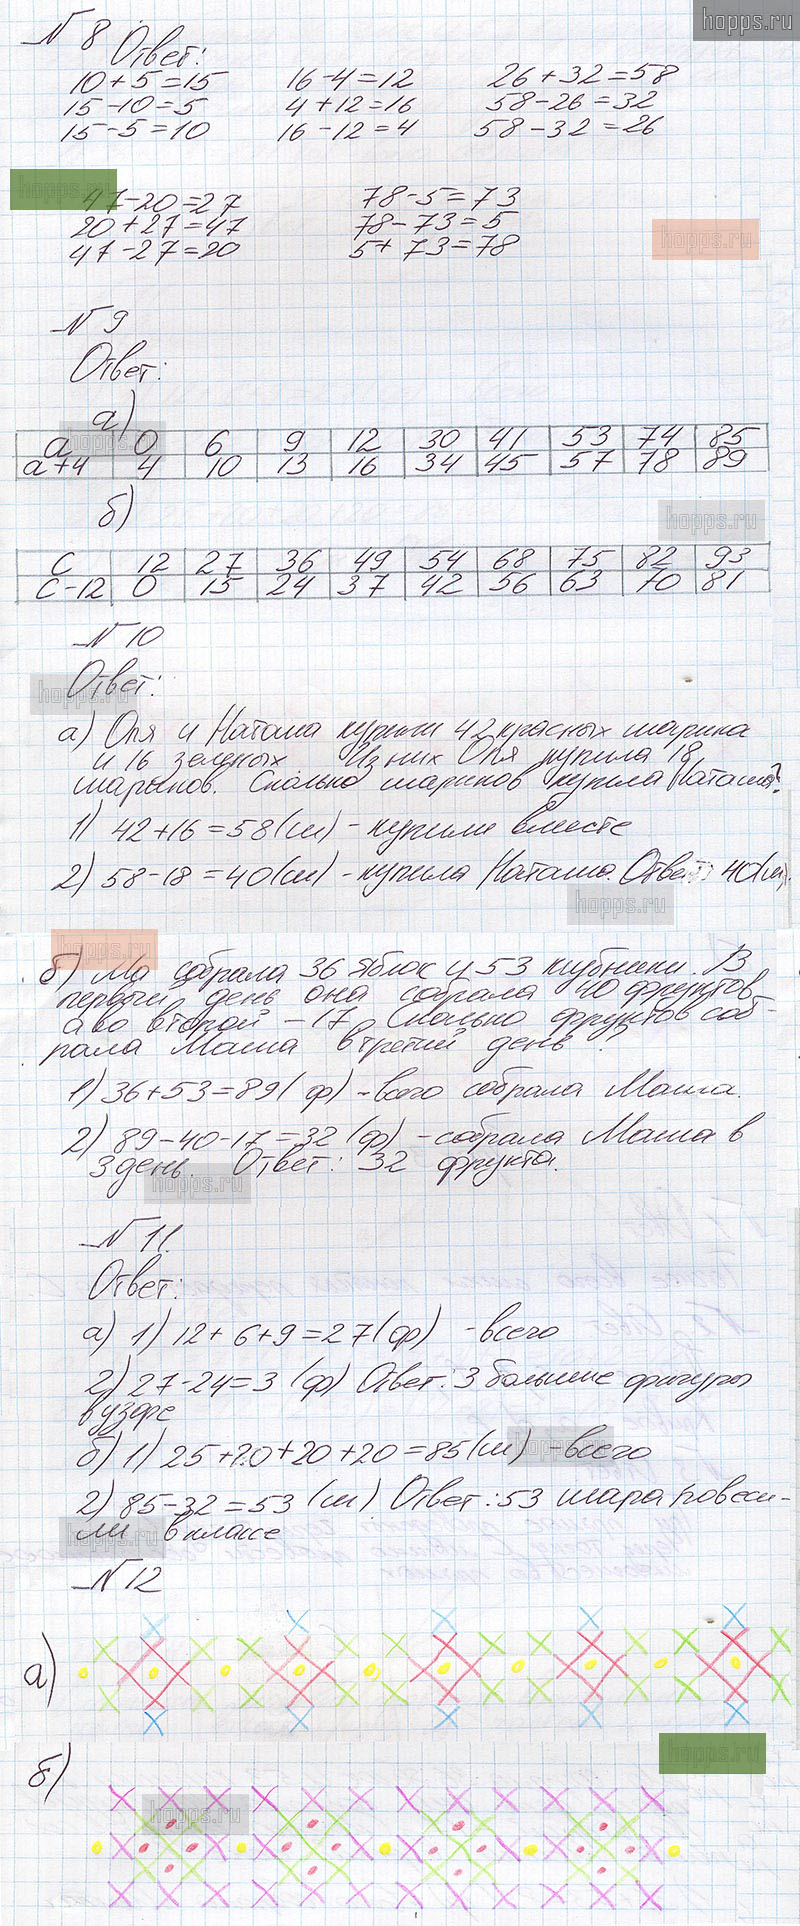 hopps.ru
№ 8 Ответ:
10+5=15 16-4=12 26+32=58
15-10=5 4+12=16 58-26=32
15-5=10 16-12=4 58-32=26
hopps.ru
47-20=27 78-5=73
20+27=47 78-73=5
hopps.ru
47-27=20 5+73=78
№ 9
Ответ:
а)
hopps.ru
а 0 6 9 12 30 41 53 74 85
а+4 4 10 13 16 34 45 57 78 89
б)
hopps.ru
с 12 27 36 49 54 68 75 82 93
с-12 0 15 24 37 42 56 63 70 81
№ 10
Ответ:
hopps.ru
а) Оля и Наташа купили 42 красных шарика
и 16 зеленых Из них Оля купила 18
шариков. Сколько шариков купила Наташа?
1) 42+16=58(ш) - купили вместе
2) 58-18=40(ш) - купила Наташа. Ответ: 40(ш).
hopps.ru
hopps.ru
б) собрала 36 яблок и 53 клубники. В
первый день она собрала 40 фруктов,
а во второй - 17. Сколько фруктов соб-
рала Маша в третий день ?
1) 36+53=89( ф) - всего собрала Маша.
2) 89-40-17=32 (ф) - собрала Маша в
3 день. Ответ: 32 фрукта.
hopps.ru
№ 11.
Ответ:
а) 1) 12+6+9=27(ф) - всего
2) 27-24=3 (ф) Ответ: 3 больше фигуры
в узоре
б) 1) 25+20+20+20=85(ш) - всего
hopps.ru
2) 85-32=53 (ш) Ответ: 53 шара повеси-
ли в классе
hopps.ru
№ 12
а)
hopps.ru
б)
hopps.ru